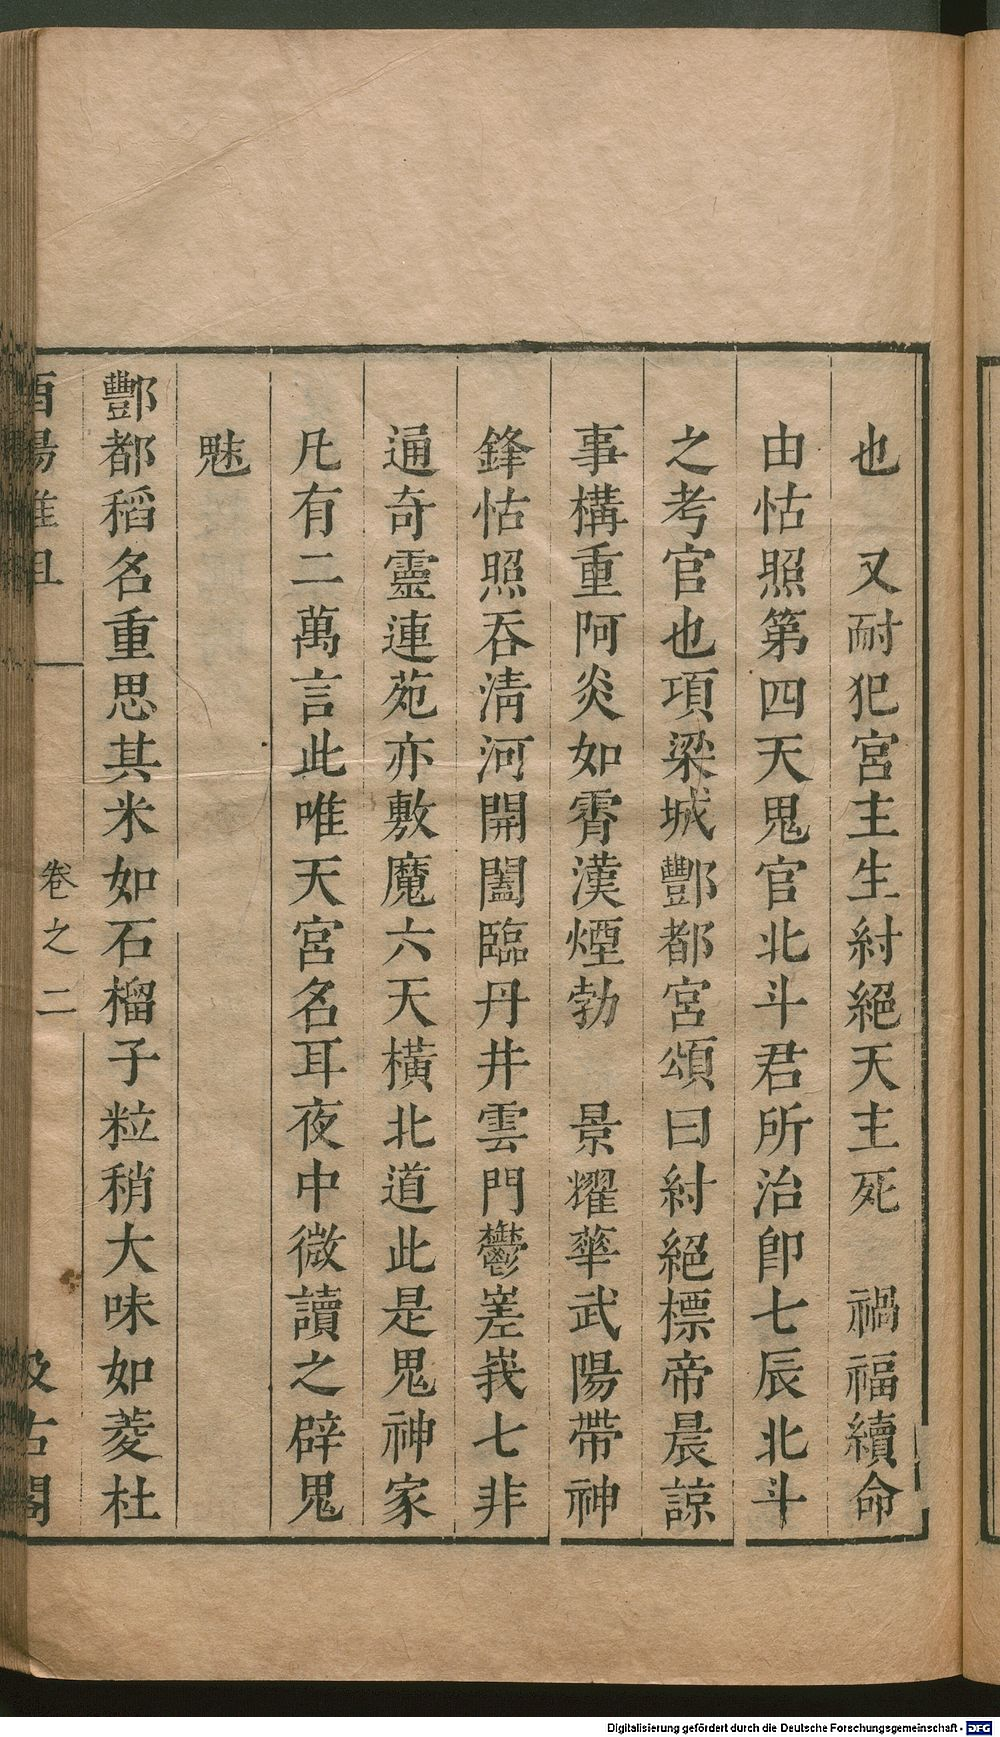 也　又耐犯宮主生紂絕天主死　禍福續命
由怙照第四天鬼官北斗君所治卽七辰北斗
之考官也項梁城酆都宮頌曰紂絕標帝晨諒
事構重阿炎如霄漢煙勃　景耀華武陽帶神
鋒怙照吞淸河開闔臨丹井雲門鬱嵳峩七非
通奇靈連苑亦敷魔六天橫北道此是鬼神家
凡有二萬言此唯天宮名耳夜中微讀之辟鬼
魅
酆都稻名重思其米如石榴子粒稍大味如菱杜
酉陽雜俎　卷之二　汲古閣
Digitalisierung gefördert durch die Deutsche Forschungsgemeinschaft - DFG